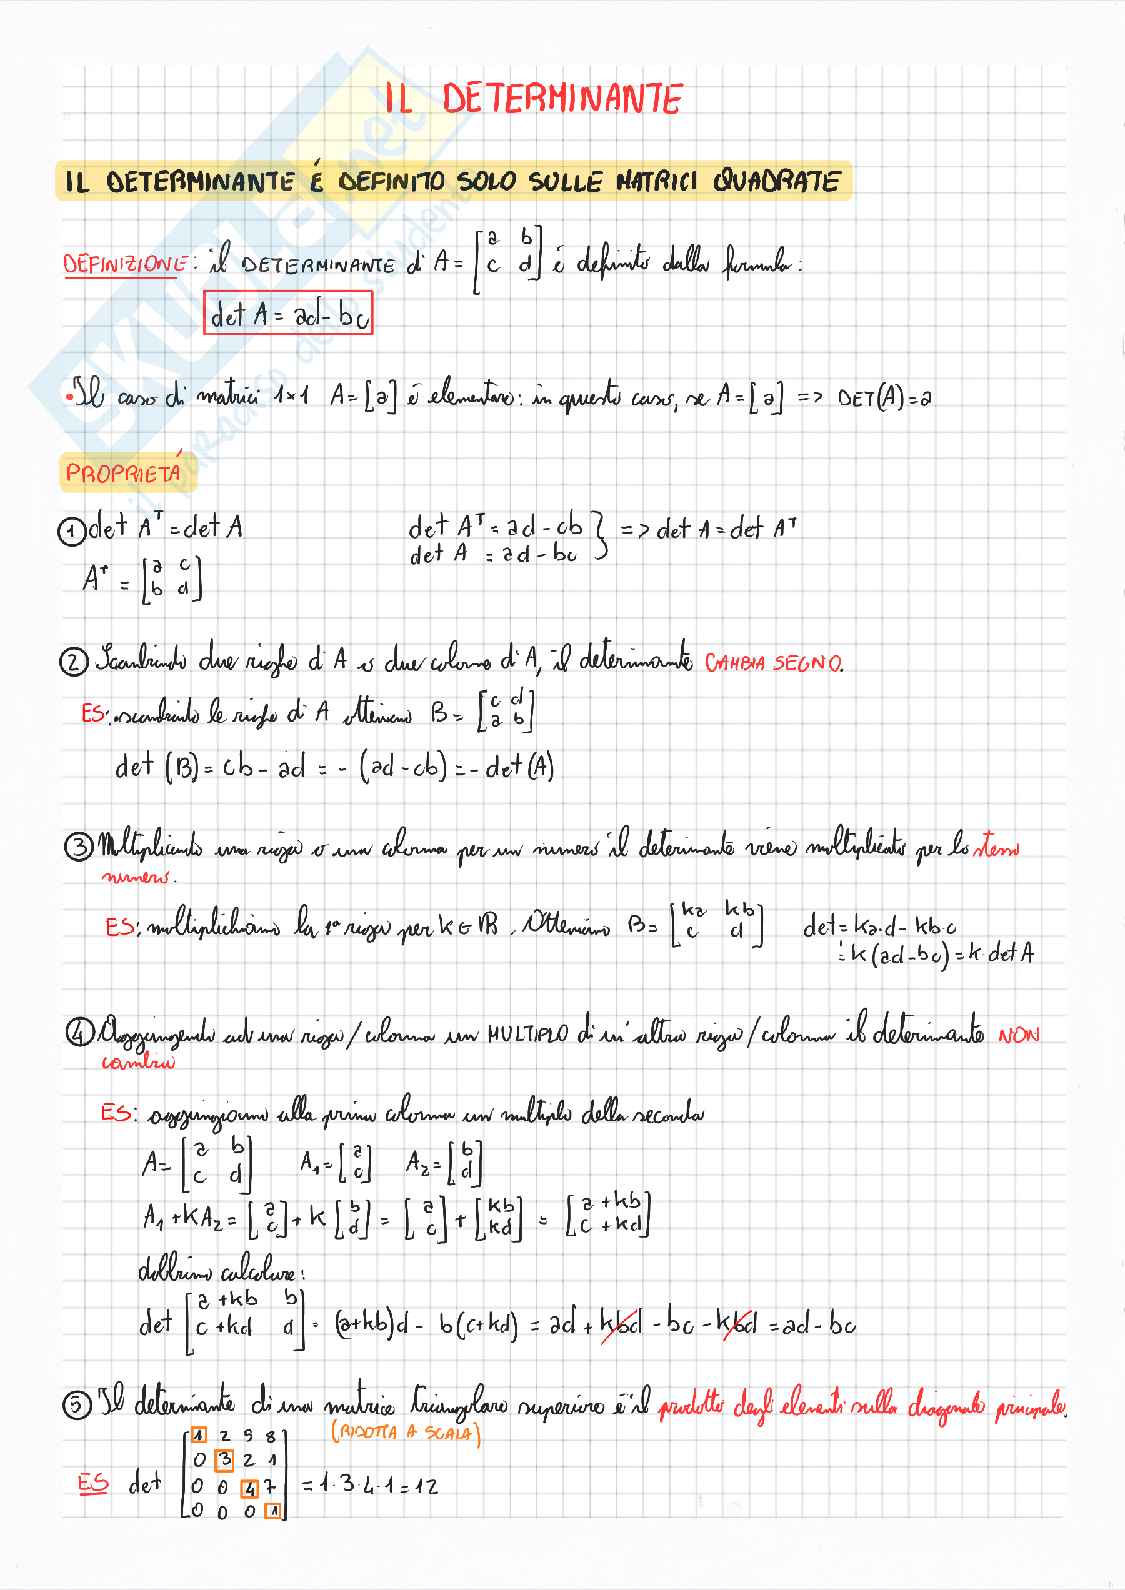 IL DETERMINANTE
IL DETERMINANTE É DEFINITO SOLO SULLE MATRICI QUADRATE
DEFINIZIONE: il DETERMINANTE di A = [a b; c d] è definito dalla formula:
det A = ad - bc
• Il caso di matrici 1×1 A = [a] è elementare: in questo caso, se A = [a] => DET(A) = a
PROPRIETÁ
① det Aᵀ = det A
det Aᵀ = ad - cb
det A = ad - bc } => det A = det Aᵀ
Aᵀ = [a c; b d]
② Scambiando due righe di A o due colonne di A, il determinante CAMBIA SEGNO.
ES: scambiando le righe di A otteniamo B = [c d; a b]
det (B) = cb - ad = - (ad - cb) = - det (A)
③ Moltiplicando una riga o una colonna per un numero il determinante viene moltiplicato per lo stesso
numero.
ES: moltiplichiamo la 1ª riga per k ∈ ℝ. Otteniamo B = [ka kb; c d] det = ka·d - kbc
= k (ad - bc) = k · det A
④ Aggiungendo ad una riga/colonna un MULTIPLO di un'altra riga/colonna il determinante NON
cambia
ES: aggiungiamo alla prima colonna un multiplo della seconda
A = [a b; c d] A₁ = [a; c] A₂ = [b; d]
A₁ + kA₂ = [a; c] + k [b; d] = [a; c] + [kb; kd] = [a + kb; c + kd]
dobbiamo calcolare:
det [a + kb b; c + kd d] = (a+kb)d - b(c+kd) = ad + kbd - bc - kbd = ad - bc
⑤ Il determinante di una matrice triangolare superiore è il prodotto degli elementi sulla diagonale principale.
(RIDOTTA A SCALA)
ES det [1 2 5 8; 0 3 2 1; 0 0 4 7; 0 0 0 1] = 1·3·4·1 = 12
SKUOLA.net
il paradiso dello studente